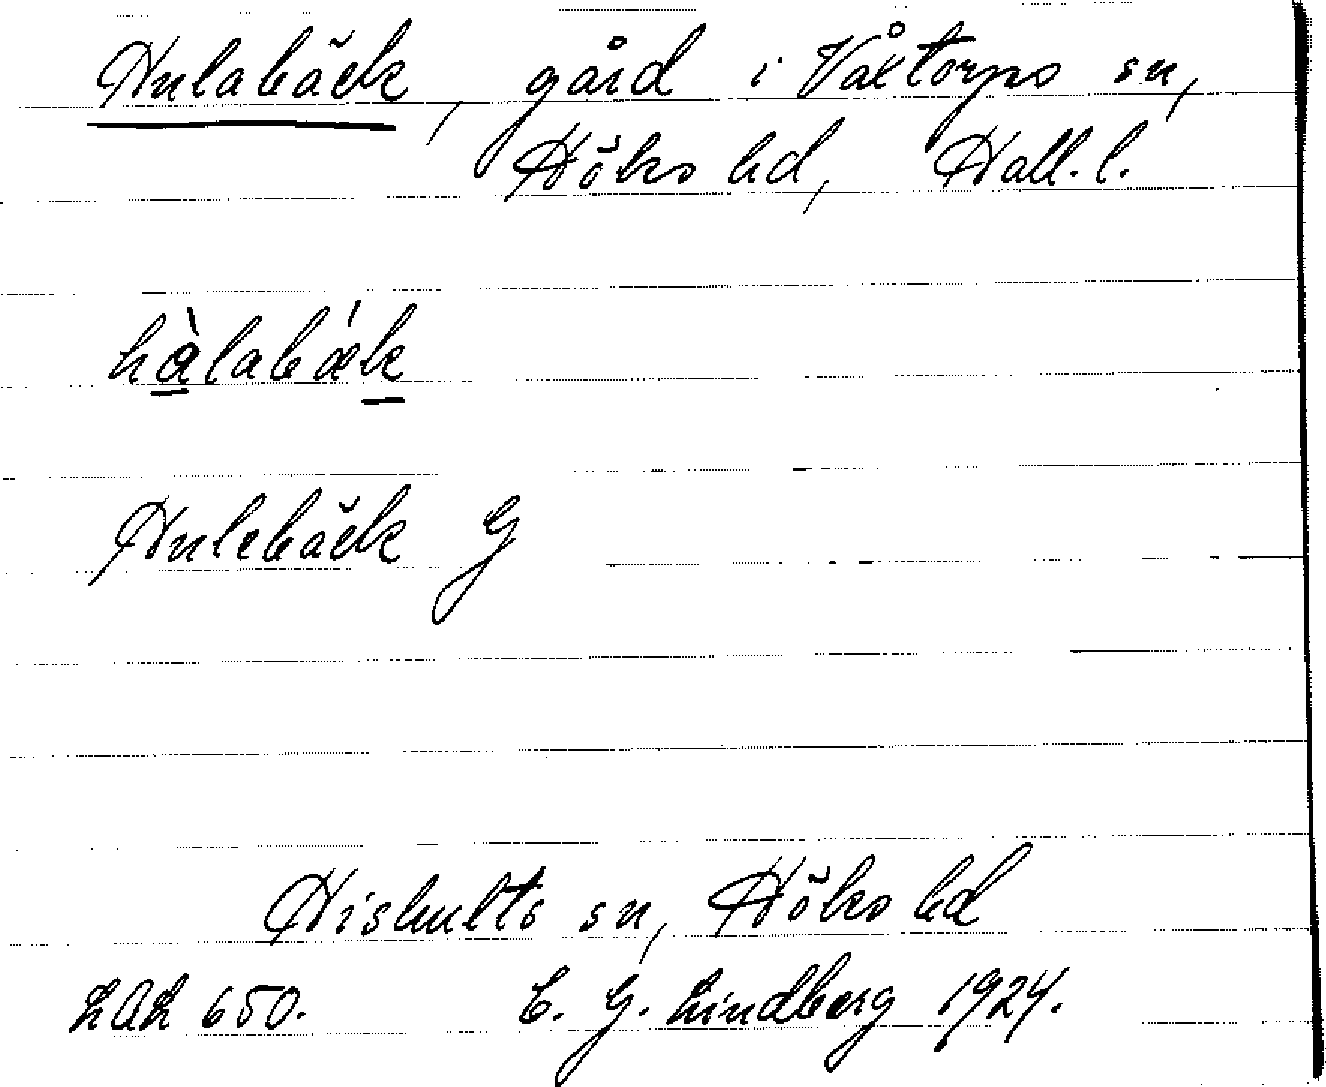 Hulabäck, gård i Våxtorps sn,
Höks hd, Hall. l.
hàlabǽk
Hulebäck G
Hishults sn, Höks hd
LAL 650. C. G. Lindberg 1924.